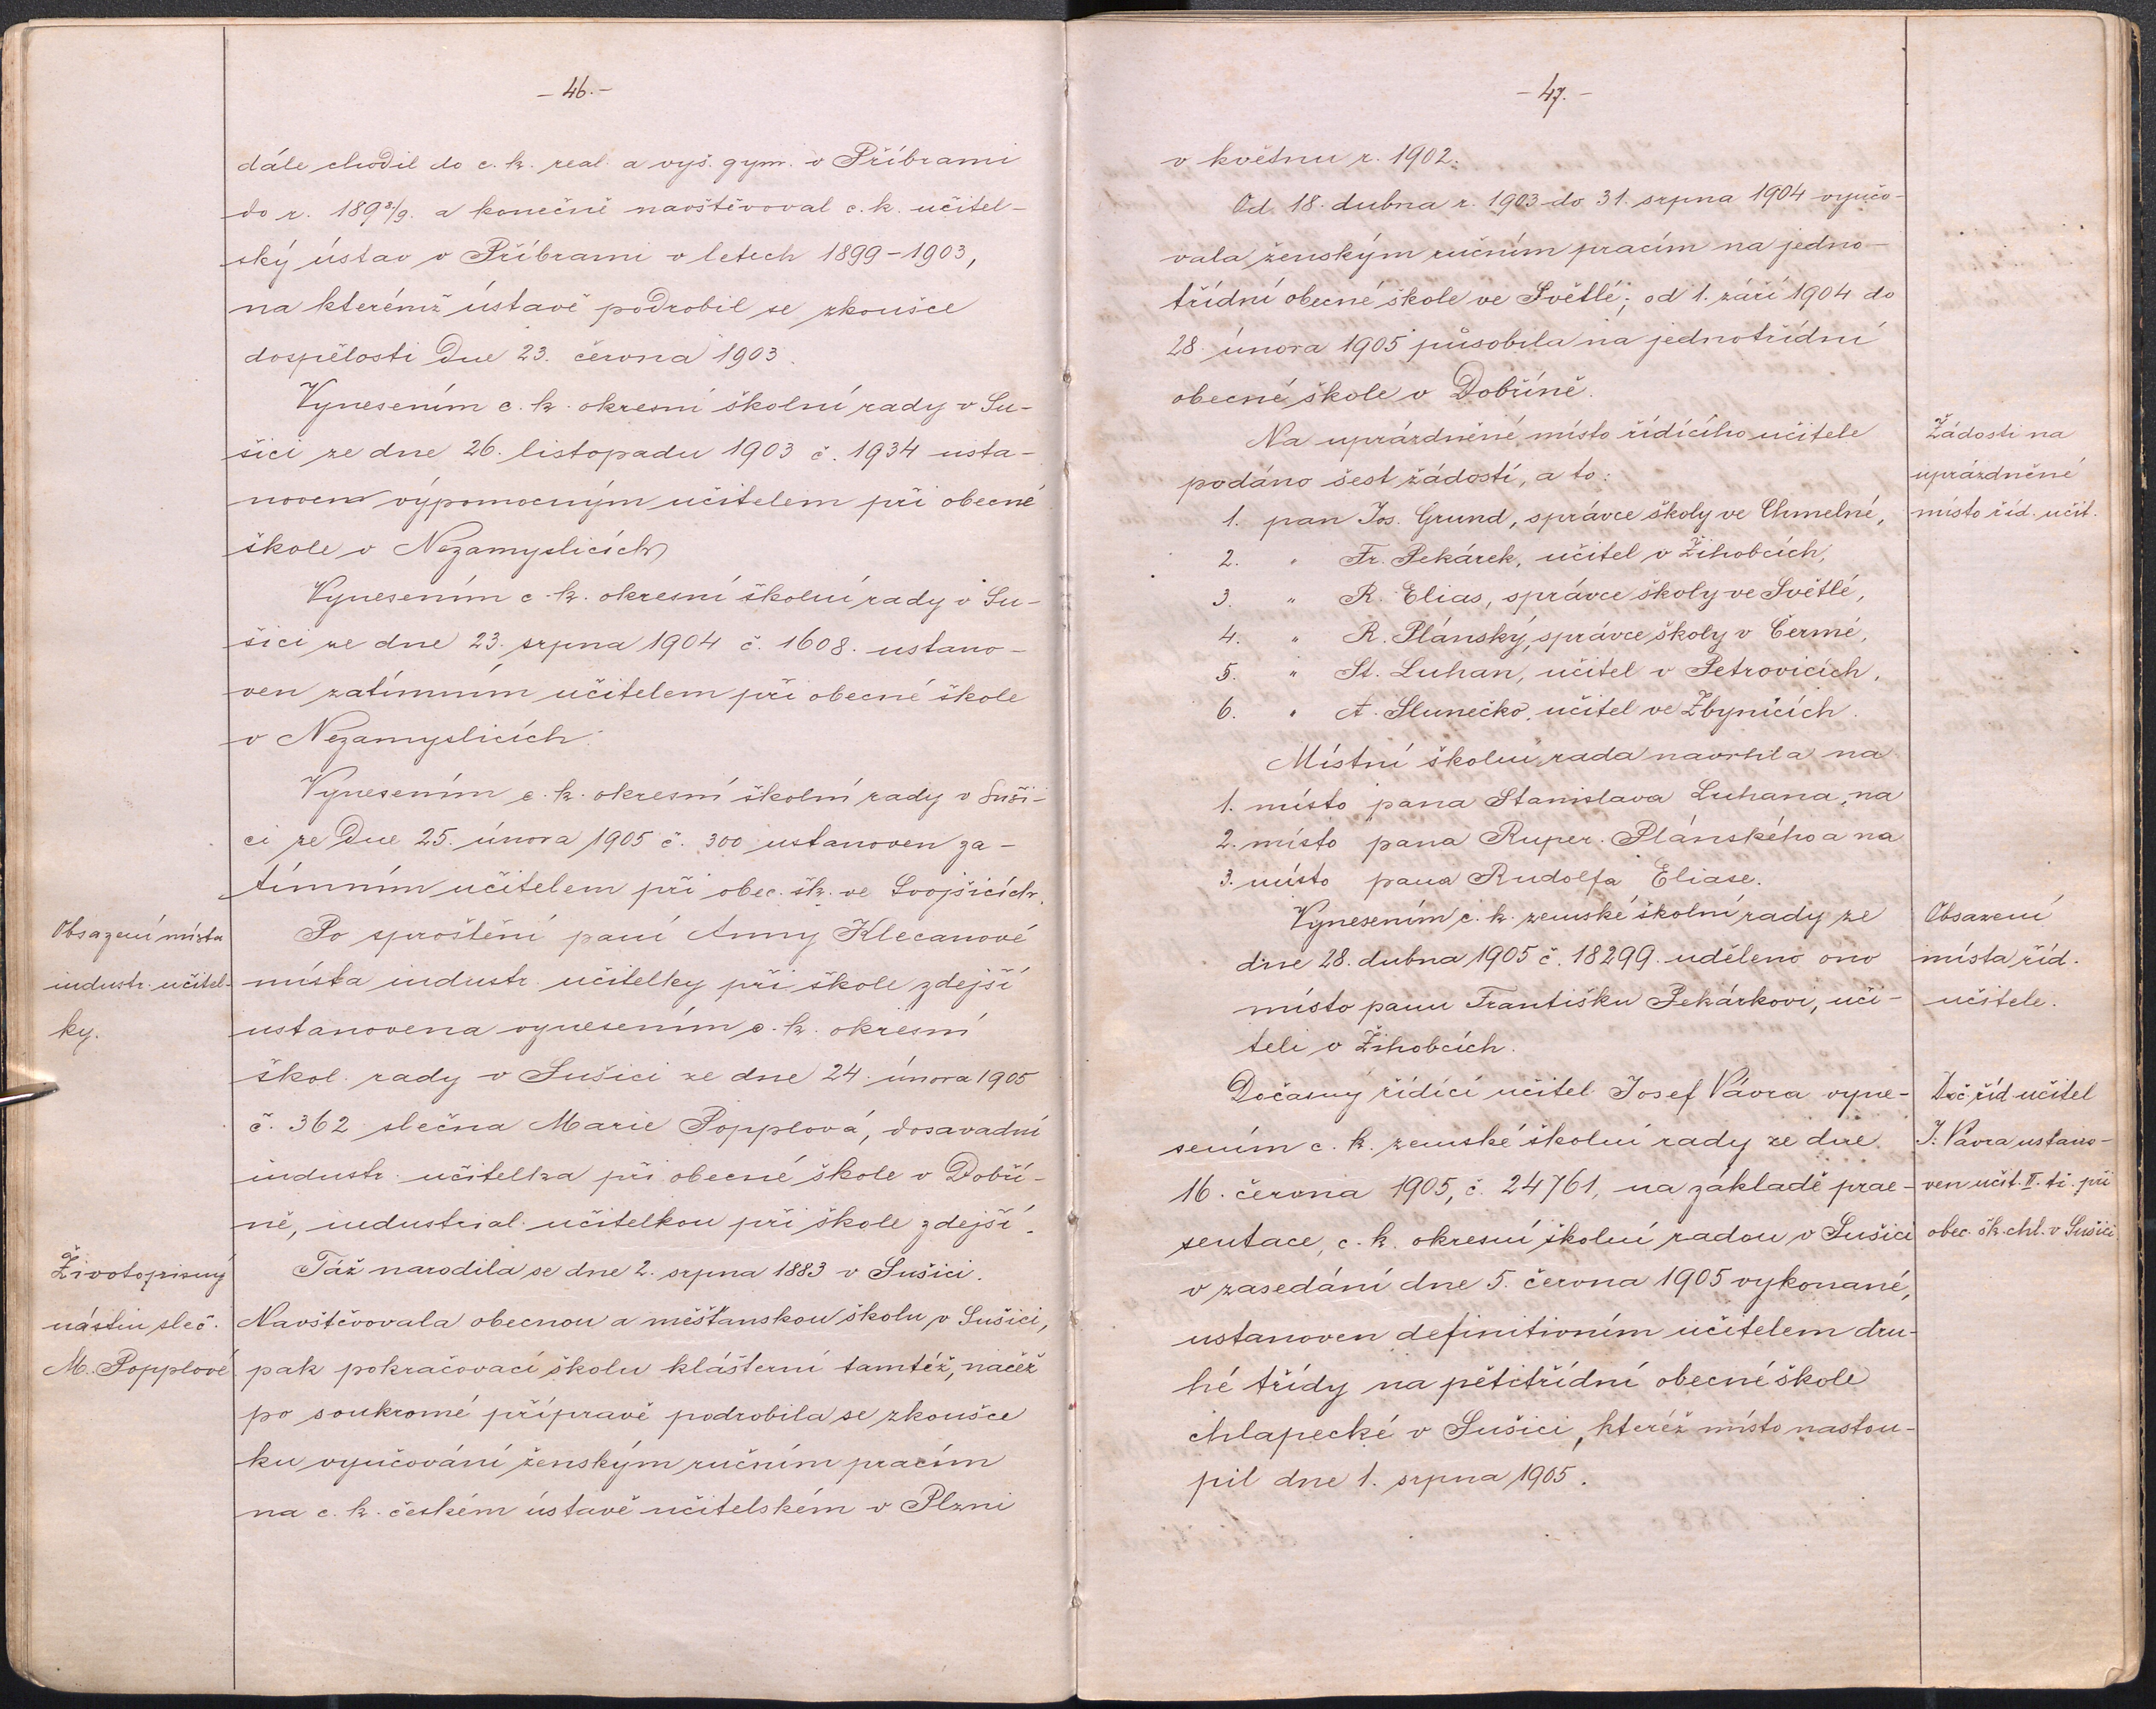 - 46. -
dále chodil do c. k. real. a vyš. gym. v Příbrami
do r. 189 8/9. a konečně navštěvoval c. k. učitel-
ský ústav v Příbrami v letech 1899-1903,
na kterémž ústavě podrobil se zkoušce
dospělosti dne 23. června 1903.
Vynesením c. k. okresní školní rady v Su-
šici ze dne 26. listopadu 1903 č. 1934 usta-
noven výpomocným učitelem při obecné
škole v Nezamyslicích
Vynesením c. k. okresní školní rady v Su-
šici ze dne 23. srpna 1904 č. 1608. ustano-
ven zatímním učitelem při obecné škole
v Nezamyslicích.
Vynesením c. k. okresní školní rady v Suši-
ci ze dne 25. února 1905 č. 300 ustanoven za-
tímním učitelem při obec. šk. ve Svojšicích.
Obsazení místa
industr. učitel-
ky.
Po sproštění paní Anny Klecanové
místa industr. učitelky při škole zdejší
ustanovena vynesením c. k. okresní
škol. rady v Sušici ze dne 24. února 1905
č. 362 slečna Marie Popplová, dosavadní
industr. učitelka při obecné škole v Dobří-
ně, industrial. učitelkou při škole zdejší.
Životopisný
nástin sleč.
M. Popplové
Táž narodila se dne 2. srpna 1883 v Sušici.
Navštěvovala obecnou a měšťanskou školu v Sušici,
pak pokračovací školu klášterní tamtéž, načež
po soukromé přípravě podrobila se zkoušce
ku vyučování ženským ručním pracím
na c. k. českém ústavě učitelském v Plzni
- 47. -
v květnu r. 1902.
Od 18. dubna r. 1903 do 31. srpna 1904 vyučo-
vala ženským ručním pracím na jedno-
třídní obecné škole ve Světlé; od 1. září 1904 do
28. února 1905 působila na jednotřídní
obecné škole v Dobříně.
Žádosti na
uprázdněné
místo říd. učit.
Na uprázdněné místo řídícího učitele
podáno šest žádostí, a to:
1. pan Jos. Grund, správce školy ve Chmelné,
2. " Fr. Pekárek, učitel v Žihobcích,
3. " R. Elias, správce školy ve Světlé,
4. " R. Plánský, správce školy v Čermé,
5. " St. Luhan, učitel v Petrovicích,
6. " A. Slunečko, učitel ve Zbynicích.
Místní školní rada navrhla na
1. místo pana Stanislava Luhana, na
2. místo pana Ruper. Plánského a na
3. místo pana Rudolfa Eliase.
Obsazení
místa říd.
učitele.
Vynesením c. k. zemské školní rady ze
dne 28. dubna 1905 č. 18299. uděleno ono
místo panu Františku Pekárkovi, uči-
teli v Žihobcích.
Doč. říd. učitel
J. Vávra ustano-
ven učit. II. tř. při
obec. šk. chl. v Sušici
Dočasný řídící učitel Josef Vávra vyne-
sením c. k. zemské školní rady ze dne
16. června 1905, č. 24761, na základě prae-
sentace, c. k. okresní školní radou v Sušici
v zasedání dne 5. června 1905 vykonané,
ustanoven definitivním učitelem dru-
hé třídy na pětitřídní obecné škole
chlapecké v Sušici, kteréž místo nastou-
pil dne 1. srpna 1905.